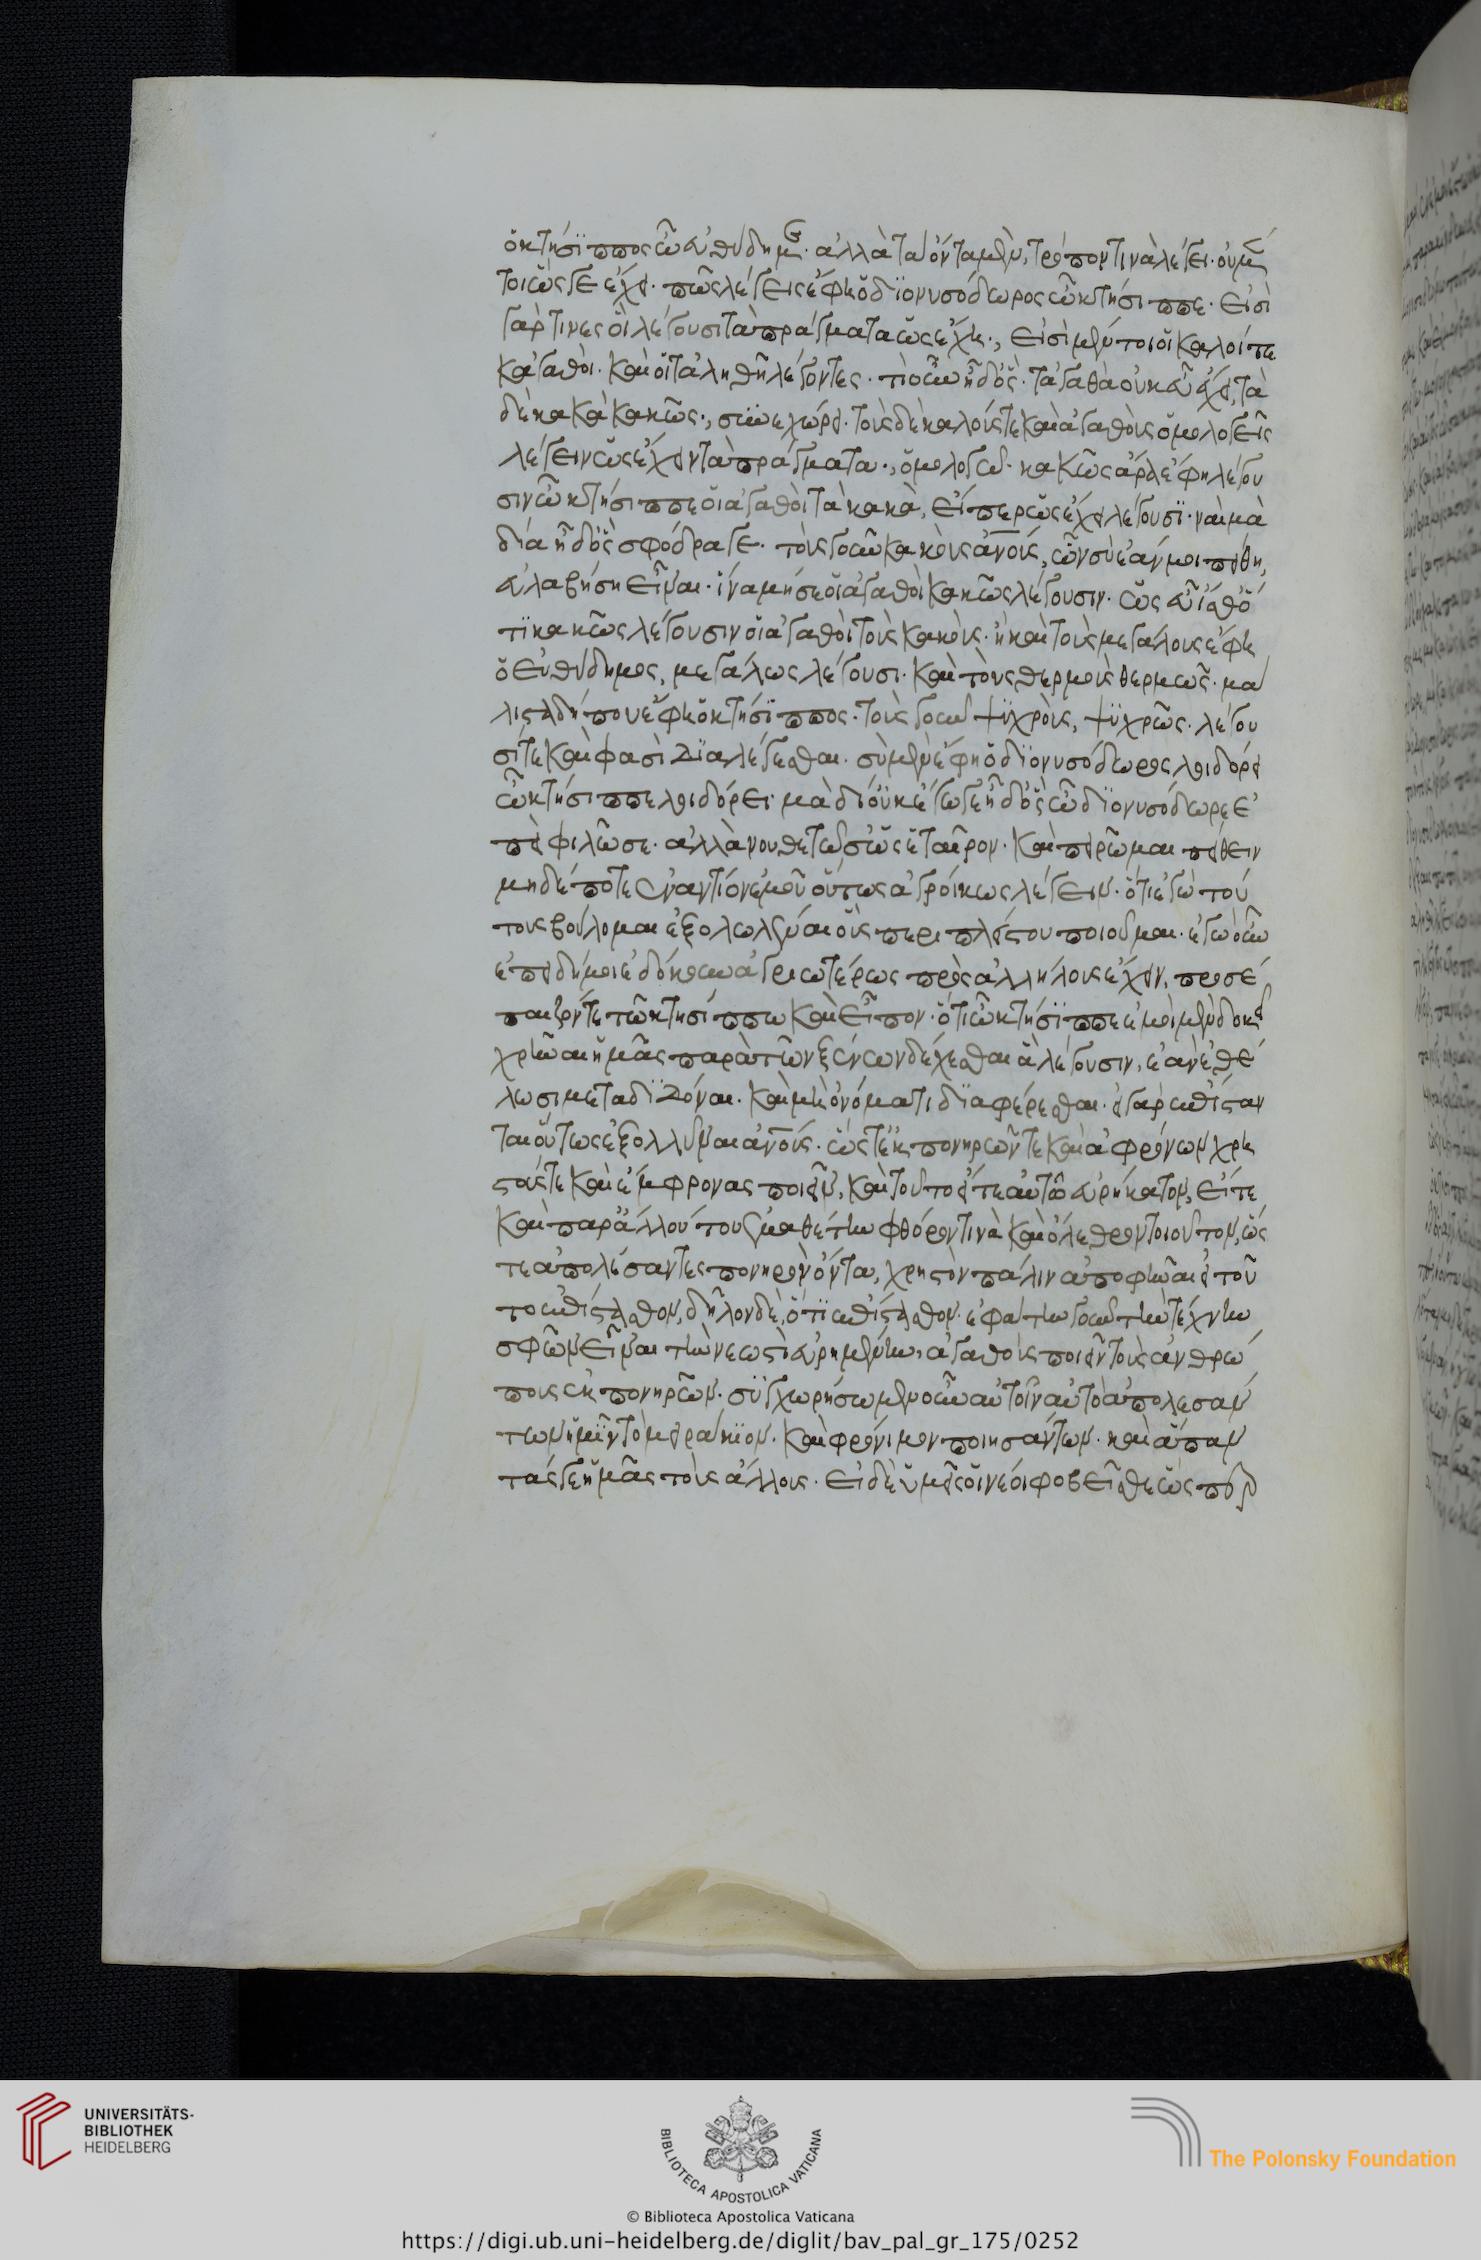 ὁ κτήσιππος ὦ εὐθύδημε· ἀλλὰ τὰ ὄντα μὲν, τρόπον τινὰ λέγει· οὐ μέν
τοι ὥς γε ἔχει· πῶς λέγεις ἔφη ὁ διονυσόδωρος ὦ κτήσιππε· εἰσὶ
γάρ τινες οἳ λέγουσι τὰ πράγματα ὡς ἔχει; εἰσὶ μέν τοι οἱ καλοί τε
κἀγαθοὶ· καὶ οἱ τἀληθῆ λέγοντες· τί οὖν ἦ δ' ὅς· τἀγαθὰ οὐκ εὖ ἔχει, τὰ
δὲ κακὰ κακῶς; συνεχώρει· τοὺς δὲ καλούς τε καὶ ἀγαθοὺς ὁμολογεῖς
λέγειν ὡς ἔχει τὰ πράγματα; ὁμολογῶ· κακῶς ἄρα ἔφη λέγου
σιν ὦ κτήσιππε οἱ ἀγαθοὶ τὰ κακὰ, εἴπερ ὡς ἔχει λέγουσι· ναὶ μὰ
δία ἦ δ' ὃς σφόδρα γε· τοὺς γοῦν κακοὺς ἀνους, ὧν σὺ ἐάν μοι πείθῃ,
εὐλαβήσῃ εἶναι· ἵνα μή σε οἱ ἀγαθοὶ κακῶς λέγουσιν· ὡς εὖ ἴσθ' ὅ
τι κακῶς λέγουσιν οἱ ἀγαθοὶ τοὺς κακοὺς· ἦ καὶ τοὺς μεγάλους ἔφη
ὁ εὐθύδημος, μεγάλως λέγουσι· καὶ τοὺς θερμοὺς θερμῶς· μά
λιστα δήπου ἔφη ὁ κτήσιππος· τοὺς γοῦν ψυχροὺς, ψυχρῶς· λέγου
σί τε καὶ φασὶ διαλέγεσθαι· σὺ μὲν ἔφη ὁ διονυσόδωρος λοιδορεῖ
ὦ κτήσιππε λοιδορεῖ· μὰ δί οὐκ ἔγωγε ἦ δ' ὃς ὦ διονυσόδωρε ἐ
πεὶ φιλῶ σε· ἀλλὰ νουθετῶ σ' ὡς ἑταῖρον· καὶ πειρῶμαι πείθειν
μηδέποτε ἐναντίον ἐμοῦ οὕτως ἀγροίκως λέγειν· ὅτι ἐγὼ τού
τους βούλομαι ἐξολωλέναι οὓς περι πλείστου ποιοῦμαι· ἐγὼ οὖν
ἐπειδή μοι ἐδόκουν ἀγριωτέρως πρὸς ἀλλήλους ἔχειν, προσέ
παιζόν τε τῶ κτησίππω καὶ εἶπον· ὅτι ὦ κτήσιππε ἐμοὶ μὲν δοκεῖ
χρῆναι ἡμᾶς παρὰ τῶν ξένων δέχεσθαι ἃ λέγουσιν, ἐὰν ἐθέ
λωσι μεταδιδόναι· καὶ μὴ ὀνόματι διαφέρεσθαι· εἰ γὰρ ἐπίσταν
ται οὕτως ἐξολλύναι ἀνους· ὥστ' ἐκ πονηρῶν τε καὶ ἀφρόνων χρη
στούς τε καὶ ἔμφρονας ποιεῖν, καὶ τοῦτο εἴτε αὐτὼ εὑρήκατον, εἴτε
καὶ παρ' ἄλλου του ἐμαθέτην φθόρον τινὰ καὶ ὄλεθρον τοιοῦτον, ὥσ
τε ἀπολέσαντες πονηρὸν ὄντα, χρηστὸν πάλιν ἀποφῆναι εἰ τοῦ
το ἐπίστασθον, δῆλον δὲ, ὅτι ἐπίστασθον· ἐφάτην γοῦν τὴν τέχνην
σφῶν εἶναι τὴν νεωστὶ εὑρημένην, ἀγαθοὺς ποιεῖν τοὺς ἀνθρώ
πους ἐκ πονηρῶν· συγχωρήσωμεν οὖν αὐτοῖν αὐτὸ ἀπολεσάν
των ἡμῖν τὸ μειράκιον· καὶ φρόνιμον ποιησάντων· καὶ ἅπαν
τάς γε ἡμᾶς τοὺς ἄλλους· εἰ δὲ ὑμεῖς οἱ νέοι φοβεῖσθε ὥσπερ
UNIVERSITÄTS-
BIBLIOTHEK
HEIDELBERG
BIBLIOTECA APOSTOLICA VATICANA
The Polonsky Foundation
© Biblioteca Apostolica Vaticana
https://digi.ub.uni-heidelberg.de/diglit/bav_pal_gr_175/0252